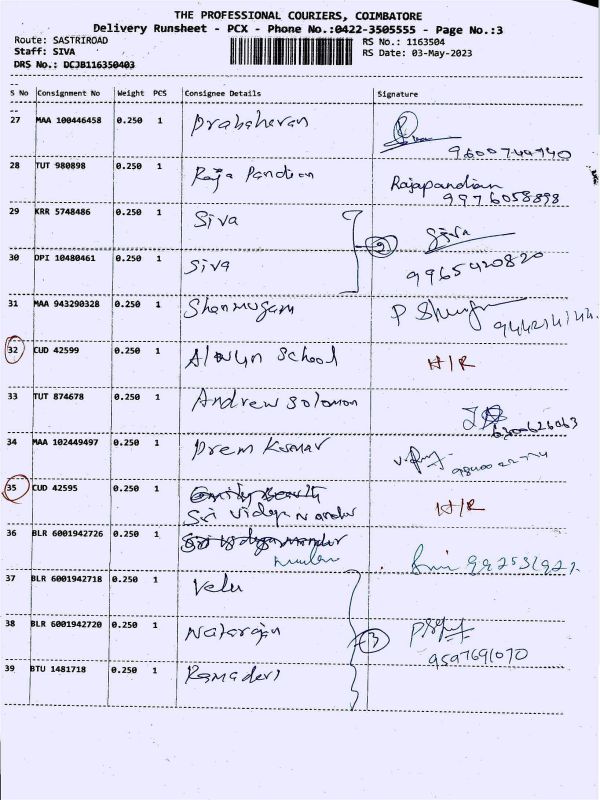 THE PROFESSIONAL COURIERS, COIMBATORE
Delivery Runsheet - PCX - Phone No.:0422-3505555 - Page No.:3
Route: SASTRIROAD
RS No.: 1163504
Staff: SIVA
RS Date: 03-May-2023
DRS No.: DCJB116350403
S No Consignment No Weight PCS Consignee Details Signature
27 MAA 100446458 0.250 1 Prabaharan
28 TUT 980898 0.250 1 Raja Pandian Rajapandian
9976058898
29 KRR 5748486 0.250 1 Siva Siva
30 DPI 10480461 0.250 1 Siva 9965420820
31 MAA 943290328 0.250 1 Shanmugam P
32 CUD 42599 0.250 1 Alwyn School H/R
33 TUT 874678 0.250 1 Andrew Solomon
34 MAA 102449497 0.250 1 Prem Kumar
35 CUD 42595 0.250 1
Sri Vidya Mandir H/R
36 BLR 6001942726 0.250 1
37 BLR 6001942718 0.250 1 Velu
38 BLR 6001942720 0.250 1 Natarajan 3
9597691070
39 BTU 1481718 0.250 1 Ramadevi